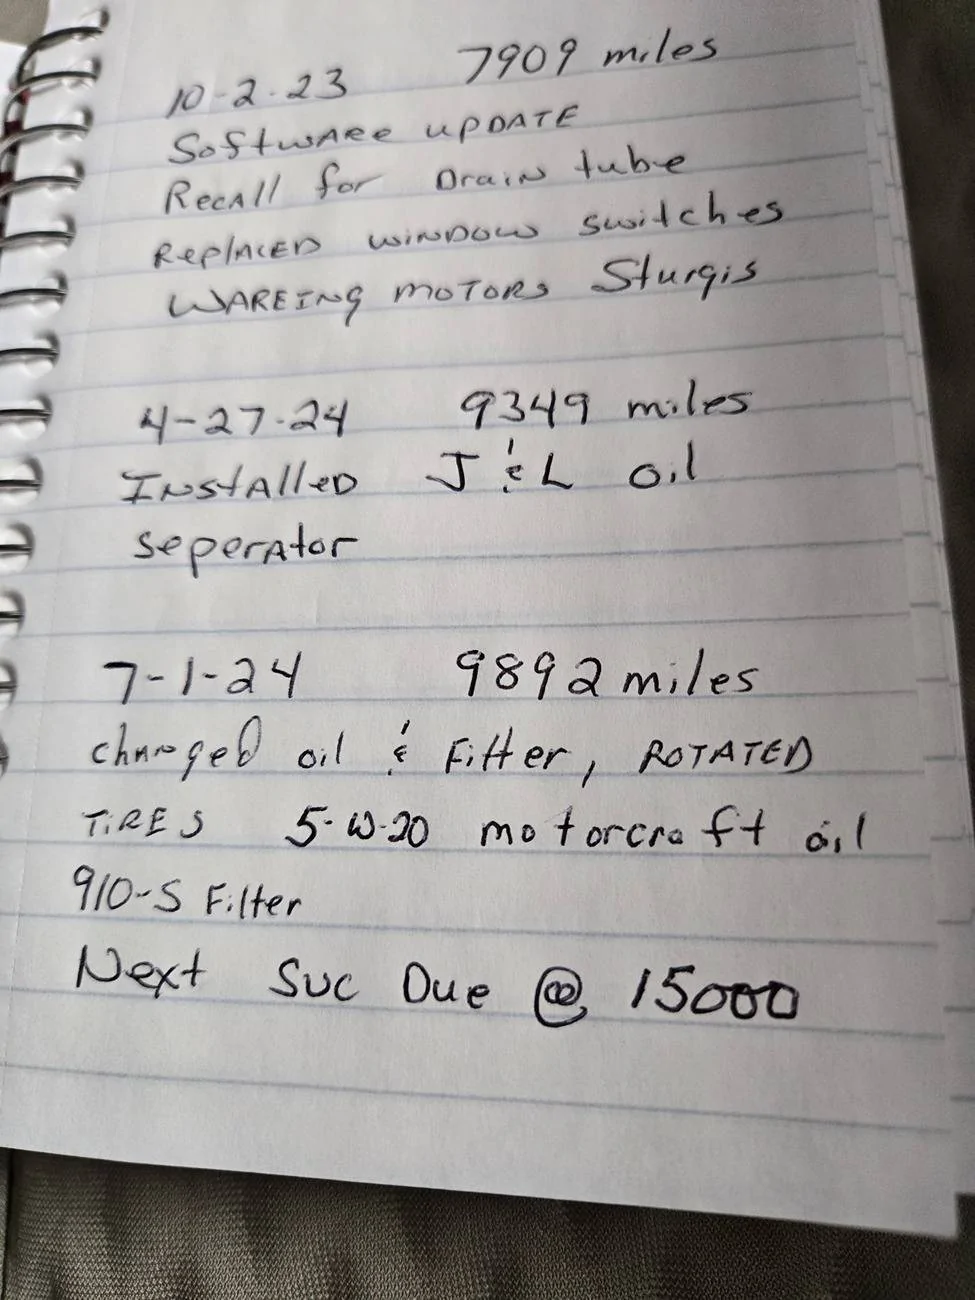 10-2-23 7909 miles
Software update
Recall for Drain tube
Replaced window switches
Wareing motors Sturgis
4-27-24 9349 miles
Installed J & L oil
seperator
7-1-24 9892 miles
changed oil & Filter, ROTATED
TIRES 5-W-20 motorcraft oil
910-S Filter
Next Svc Due @ 15000